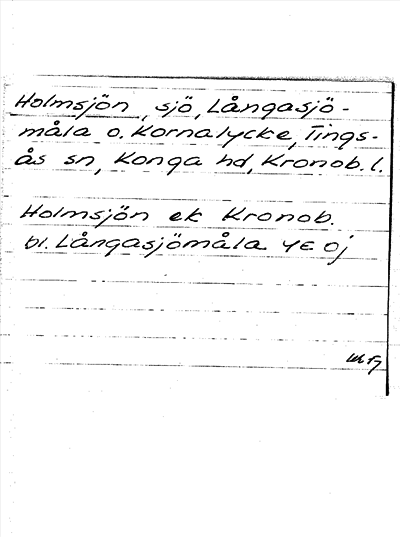 Holmsjön, sjö, Långasjö-
måla o. Kornalycke, Tings-
ås sn, Konga hd, Kronob. l.
Holmsjön ek Kronob.
bl. Långasjömåla 4E Oj